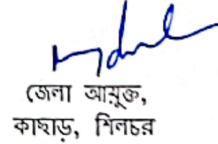 জেলা আয়ুক্ত,
কাছাড়, শিলচর